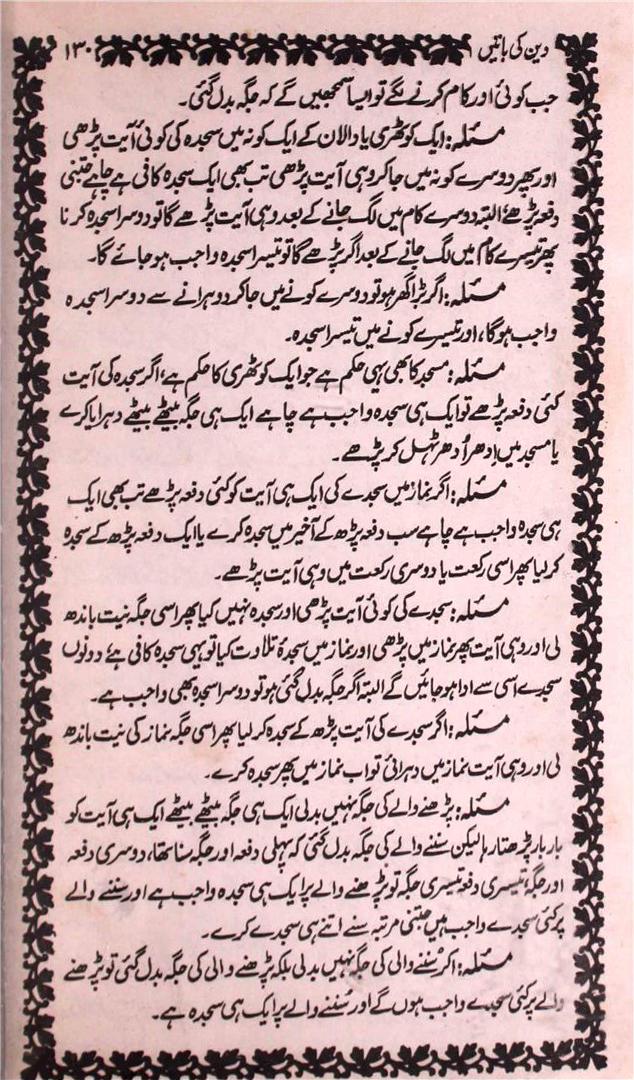 دین کی باتیں ۱۳۰
جب کوئی اور کام کرنے لگے تو ایسا سمجھیں گے کہ جگہ بدل گئی۔
مسئلہ: ایک کوٹھری یا دالان کے ایک کونہ میں سجدہ کی کوئی آیت پڑھی
اور پھر دوسرے کونہ میں جاکر وہی آیت پڑھی تب بھی ایک سجدہ کافی ہے چاہے جتنی
دفعہ پڑھے، البتہ دوسرے کام میں لگ جانے کے بعد وہی آیت پڑھے گا تو دوسرا سجدہ کرنا
پھر تیسرے کام میں لگ جانے کے بعد اگر پڑھے گا تو تیسرا سجدہ واجب ہوجائے گا۔
مسئلہ: اگر بڑا گھر ہو تو دوسرے کونے میں جاکر دوہرانے سے دوسرا سجدہ
واجب ہوگا، اور تیسرے کونے میں تیسرا سجدہ۔
مسئلہ: مسجد کا بھی یہی حکم ہے جو ایک کوٹھری کا حکم ہے، اگر سجدہ کی آیت
کئی دفعہ پڑھے تو ایک ہی سجدہ واجب ہے چاہے ایک ہی جگہ بیٹھے بیٹھے دہرایا کرے
یا مسجد میں اِدھر اُدھر ٹہل کر پڑھے۔
مسئلہ: اگر نماز میں سجدے کی ایک ہی آیت کو کئی دفعہ پڑھے تب بھی ایک
ہی سجدہ واجب ہے چاہے سب دفعہ پڑھ کے آخیر میں سجدہ کرے یا ایک دفعہ پڑھ کے سجدہ
کر لیا پھر اسی رکعت یا دوسری رکعت میں وہی آیت پڑھے۔
مسئلہ: سجدے کی کوئی آیت پڑھی اور سجدہ نہیں کیا پھر اسی جگہ نیت باندھ
لی اور وہی آیت پھر نماز میں پڑھی اور نماز میں سجدۂ تلاوت کیا تو یہی سجدہ کافی ہے، دونوں
سجدے اسی سے ادا ہوجائیں گے البتہ اگر جگہ بدل گئی ہو تو دوسرا سجدہ بھی واجب ہے۔
مسئلہ: اگر سجدے کی آیت پڑھ کے سجدہ کر لیا پھر اسی جگہ نماز کی نیت باندھ
لی اور وہی آیت نماز میں دہرائی تو اب نماز میں پھر سجدہ کرے۔
مسئلہ: پڑھنے والے کی جگہ نہیں بدلی ایک ہی جگہ بیٹھے بیٹھے ایک ہی آیت کو
بار بار پڑھتا رہا لیکن سننے والے کی جگہ بدل گئی کہ پہلی دفعہ اور جگہ سنا تھا، دوسری دفعہ
اور جگہ، تیسری دفعہ تیسری جگہ تو پڑھنے والے پر ایک ہی سجدہ واجب ہے اور سننے والے
پر کئی سجدے واجب ہیں جتنی مرتبہ سنے اتنے ہی سجدے کرے۔
مسئلہ: اگر سُننے والی کی جگہ نہیں بدلی بلکہ پڑھنے والی کی جگہ بدل گئی تو پڑھنے
والے پر کئی سجدے واجب ہوں گے اور سُننے والے پر ایک ہی سجدہ ہے۔